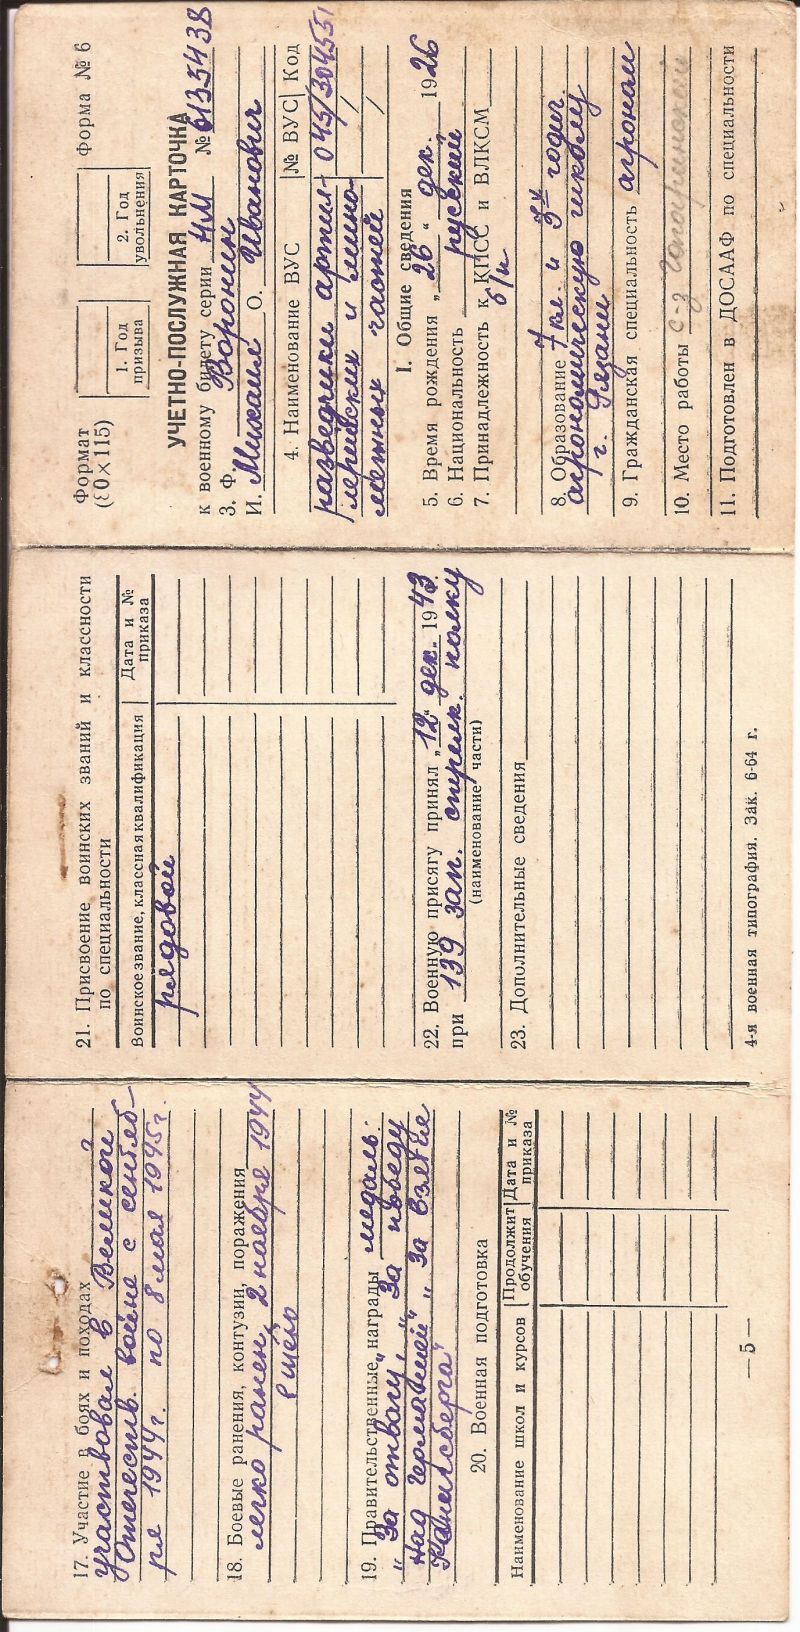 17. Участие в боях и походах
участвовал в Великой
Отечеств. войне с сентяб-
ря 1944г. по 8 мая 1945г.
18. Боевые ранения, контузии, поражения
легко ранен 2 ноября 1944
в щёку
19. Правительственные награды медаль:
„За отвагу", „За победу
над Германией" „За взятие
Кенигсберга"
20. Военная подготовка
Наименование школ и курсов | Продолжит обучения | Дата и № приказа
— 5 —
21. Присвоение воинских званий и классности
по специальности
Воинское звание, классная квалификация | Дата и № приказа
рядовой
22. Военную присягу принял „12" дек. 1943
при 139 зап. стрелк. полку
(наименование части)
23. Дополнительные сведения
4-я военная типография. Зак. 6-64 г.
Формат
(80×115)
1. Год призыва
2. Год увольнения
Форма № 6
УЧЕТНО-ПОСЛУЖНАЯ КАРТОЧКА
к военному билету серии НМ № 6135438
3. Ф Воронин
И. Михаил О. Иванович
4. Наименование ВУС | № ВУС | Код
разведчики артил- 045/304551
лерийских и мино-
метных частей
I. Общие сведения
5. Время рождения „26" дек. 1926
6. Национальность русский
7. Принадлежность к КПСС и ВЛКСМ
б/п
8. Образование 7 кл. и 3х годич.
агрономическую школу
г. Рязани
9. Гражданская специальность агроном
10. Место работы с-з
11. Подготовлен в ДОСААФ по специальности